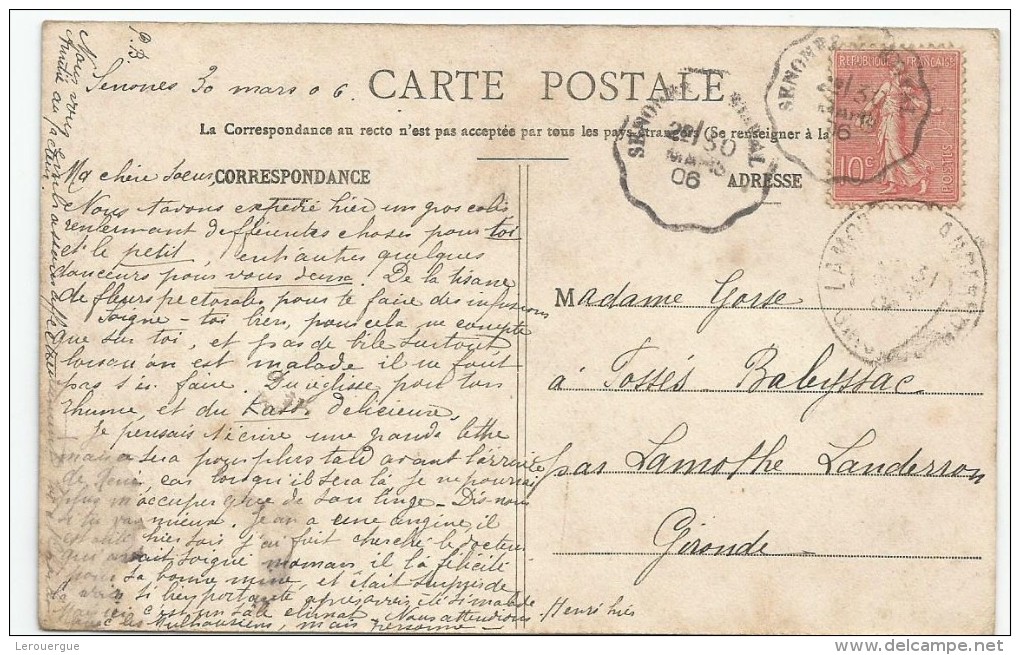 P.B
Senones 30 mars 06.
CARTE POSTALE
La Correspondance au recto n'est pas acceptée par tous les pays étrangers (Se renseigner à la
CORRESPONDANCE
ADRESSE
REPUBLIQUE FRANÇAISE
10c
POSTES
SENONES
29/30
MARS
06
Ma chère soeur,
Nous t'avons expédié hier un gros colis
renfermant différentes choses pour toi
et le petit, entr'autres quelques
douceurs pour vous deux. De la tisane
de fleurs pectorales pour te faire des infusions
Soigne-toi bien, pour cela je compte
que sur toi, et pas de bile surtout
lorsqu'on est malade il ne faut
pas s'en faire. Du réglisse pour ton
rhume, et du délicieux.
Je pensais t'écrire une grande lettre
mais ce sera pour plus tard avant l'arrivée
de car lorsqu'il sera là je ne pourrai
plus m'occuper que de son linge - Dis-nous
si tu vas mieux. Jean a une angine il
hier soir j'ai fait chercher le docteur
qui avait soigné maman il l'a félicité
pour sa bonne mine, et était surpris de
la voir si bien portante après avoir été si malade
c'est un sale climat. Nous attendions Henri hier
les Mulhousiens, mais personne -
Madame Gorse
à Fossés-Babyssac
par Lamothe Landerron
Gironde
Lerouergue
www.delcampe.net